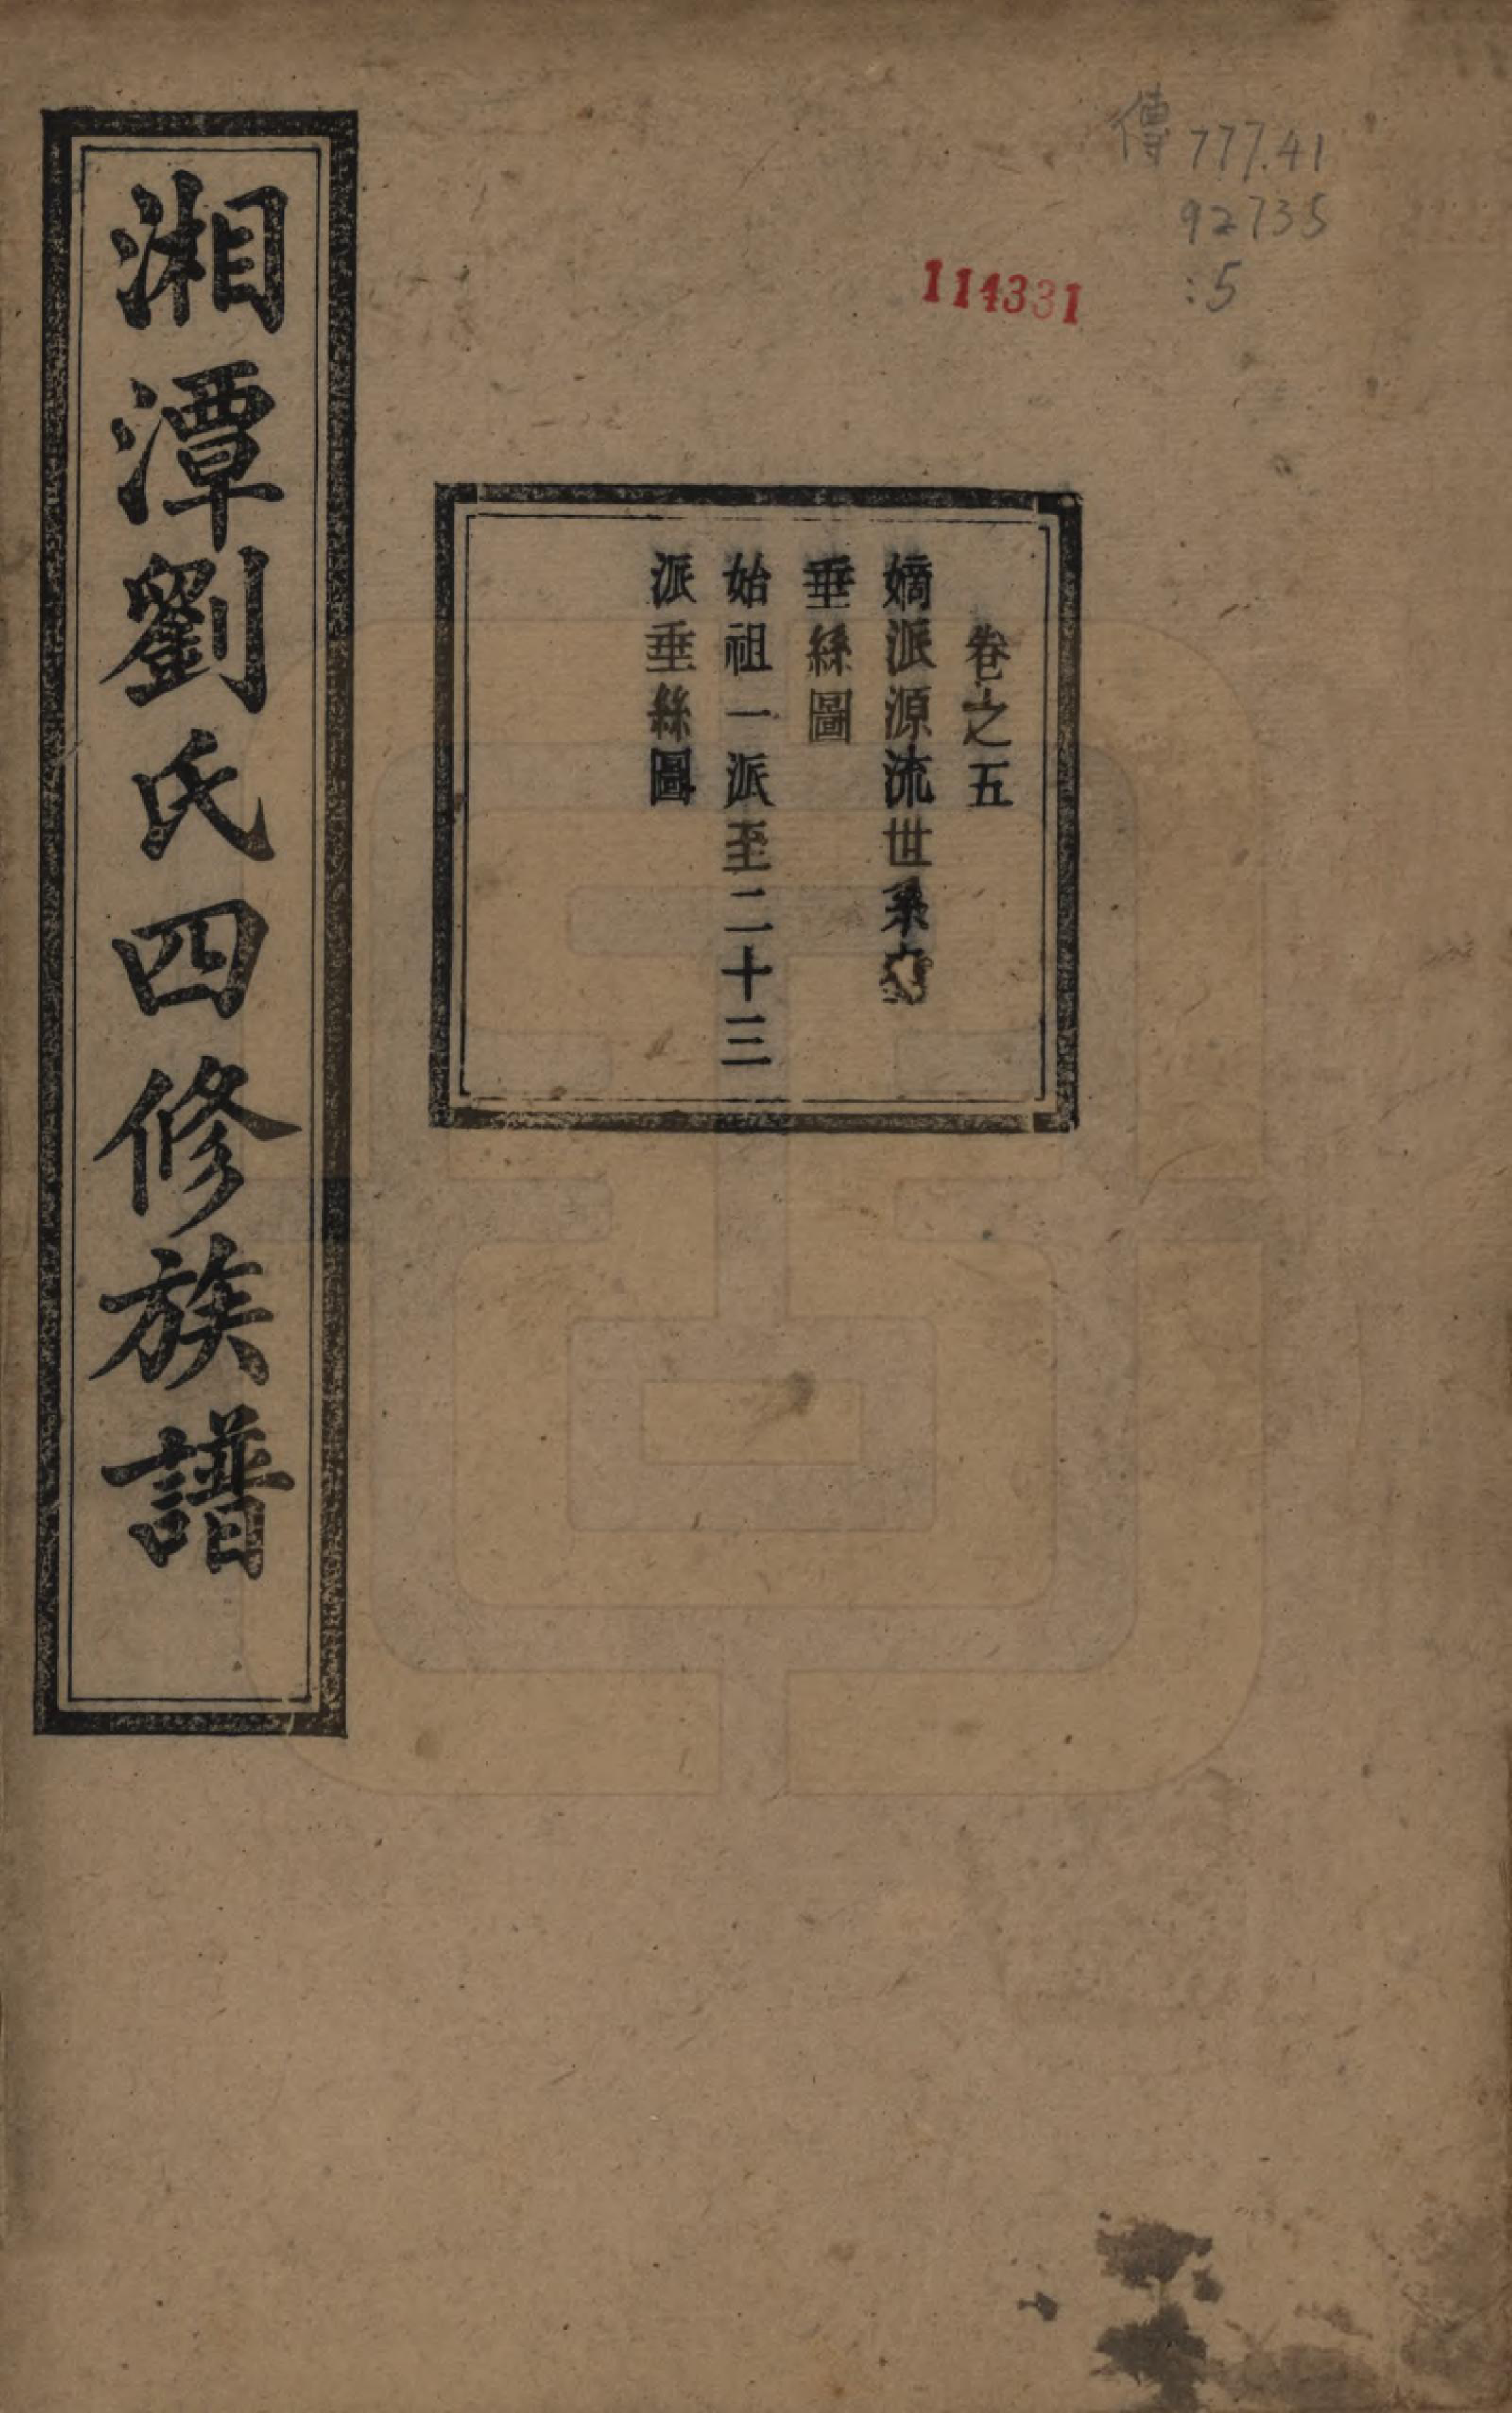 傳 777.41
92735
:5
114331
卷之五
嫡派源流世系
垂絲圖
始祖一派至二十三
派垂絲圖
湘潭劉氏四修族譜